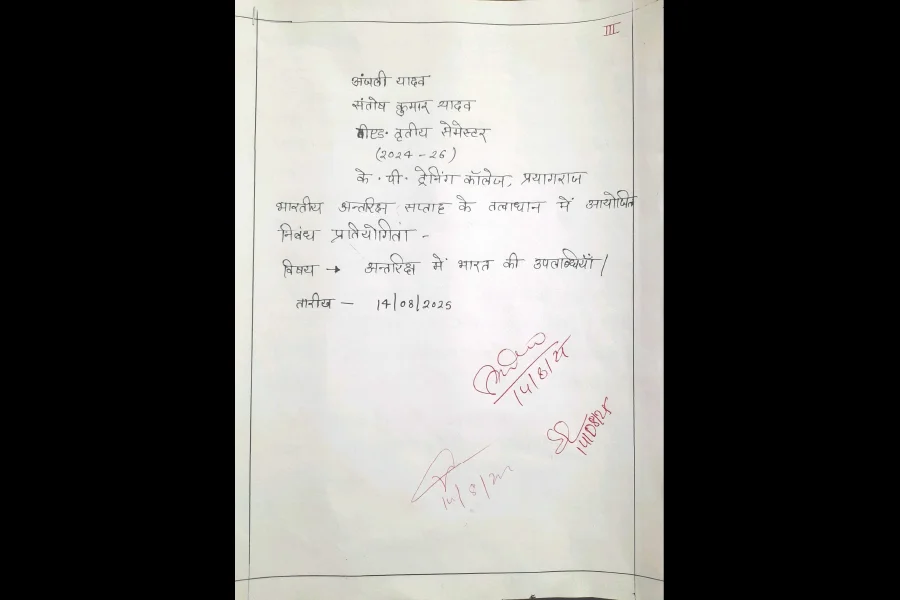 III
अंजली यादव
संतोष कुमार यादव
बीएड. तृतीय सेमेस्टर
(2024-26)
के. पी. ट्रेनिंग कॉलेज, प्रयागराज
भारतीय अन्तरिक्ष सप्ताह के तत्वाधान में आयोजित
निबंध प्रतियोगिता -
विषय → अन्तरिक्ष में भारत की उपलब्धियाँ /
तारीख - 14/08/2025
14/8/25
14/08/25
14/8/25